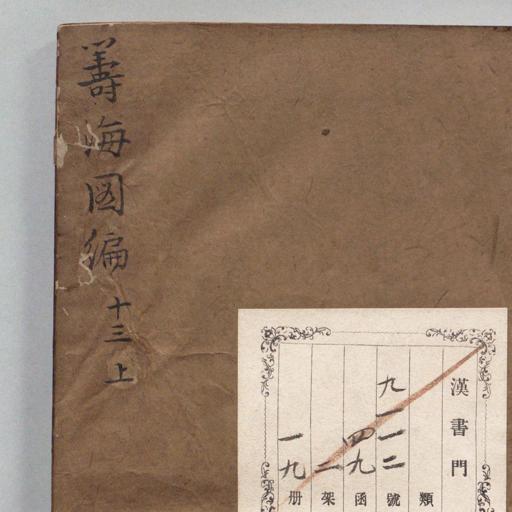 籌海図編 十三上
漢書門
類
九一一二號
四九函
二架
一九册